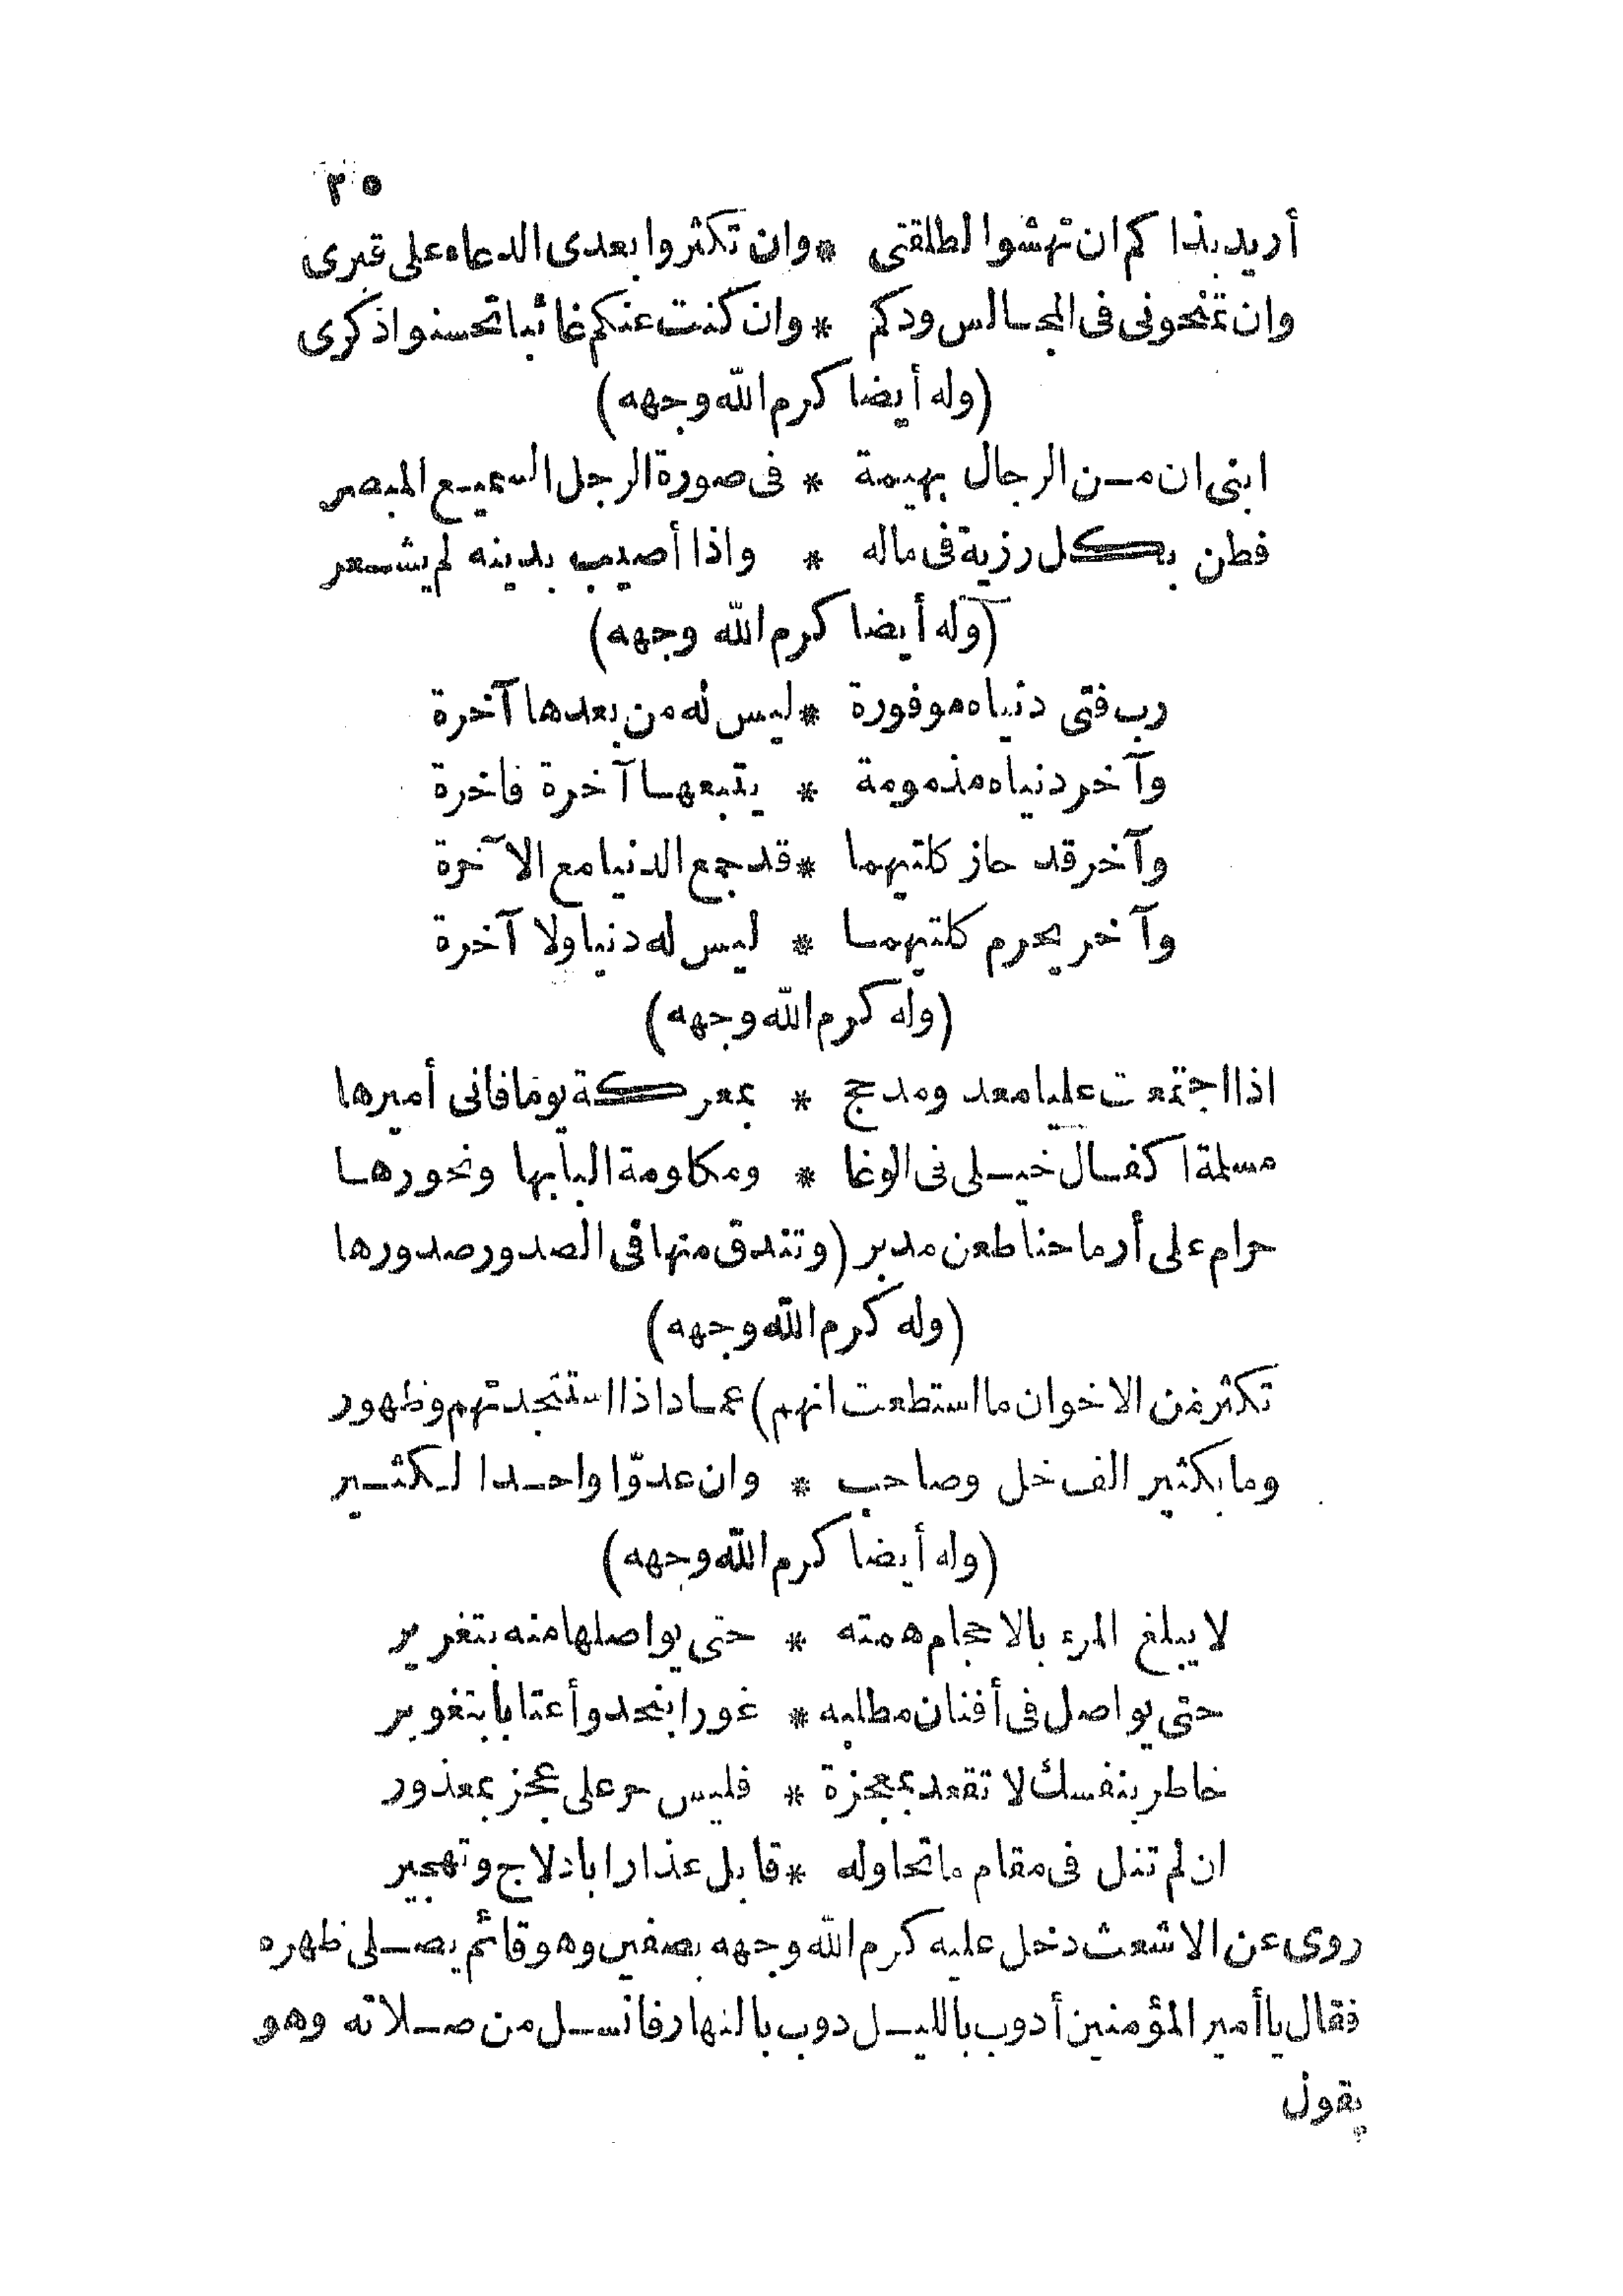 ٣٥
أريد بذا كم ان تهشوا لطلقتى * وان تكثروا بعدى الدعاء على قبرى
وان تمنحونى فى المجالس ودكم * وان كنت عنكم غائبا تحسنوا ذكرى
(وله أيضا كرم الله وجهه)
ابنى ان من الرجال بهيمة * فى صورة الرجل السميع المبصر
فطن بكل رزية فى ماله * واذا أصيب بدينه لم يشعر
(وله أيضا كرم الله وجهه)
رب فتى دنياه موفورة * ليس له من بعدها آخرة
وآخر دنياه مذمومة * يتبعها آخرة فاخرة
وآخر قد حاز كلتيهما * قد جمع الدنيا مع الآخرة
وآخر يحرم كلتيهما * ليس له دنيا ولا آخرة
(وله كرم الله وجهه)
اذا اجتمعت عليا معد ومدحج * بمعركة يوما فانى أميرها
مسلمة اكفال خيلى فى الوغا * ومكلومة البابها ونحورها
حرام على أرماحنا طعن مدبر (وتندق منها فى الصدور صدورها
(وله كرم الله وجهه)
تكثر من الاخوان ما استطعت انهم) عماد اذا استنجدتهم وظهور
وما بكثير الف خل وصاحب * وان عدوّا واحدا لكثير
(وله أيضا كرم الله وجهه)
لا يبلغ المرء بالاحجام همته * حتى يواصلها منه بتغرير
حتى يواصل فى أفنان مطلبه * غورا بنجد وأعتابا بتغوير
خاطر بنفسك لا تقعد بمعجزة * فليس حر على عجز بمعذور
ان لم تنل فى مقام ما تحاوله * قابل عذارا بادلاج وتهجير
روى عن الاشعث دخل عليه كرم الله وجهه بصفين وهو قائم يصلى ظهره
فقال يا أمير المؤمنين أدوب بالليل دوب بالنهار فانسل من صلاته وهو
يقول